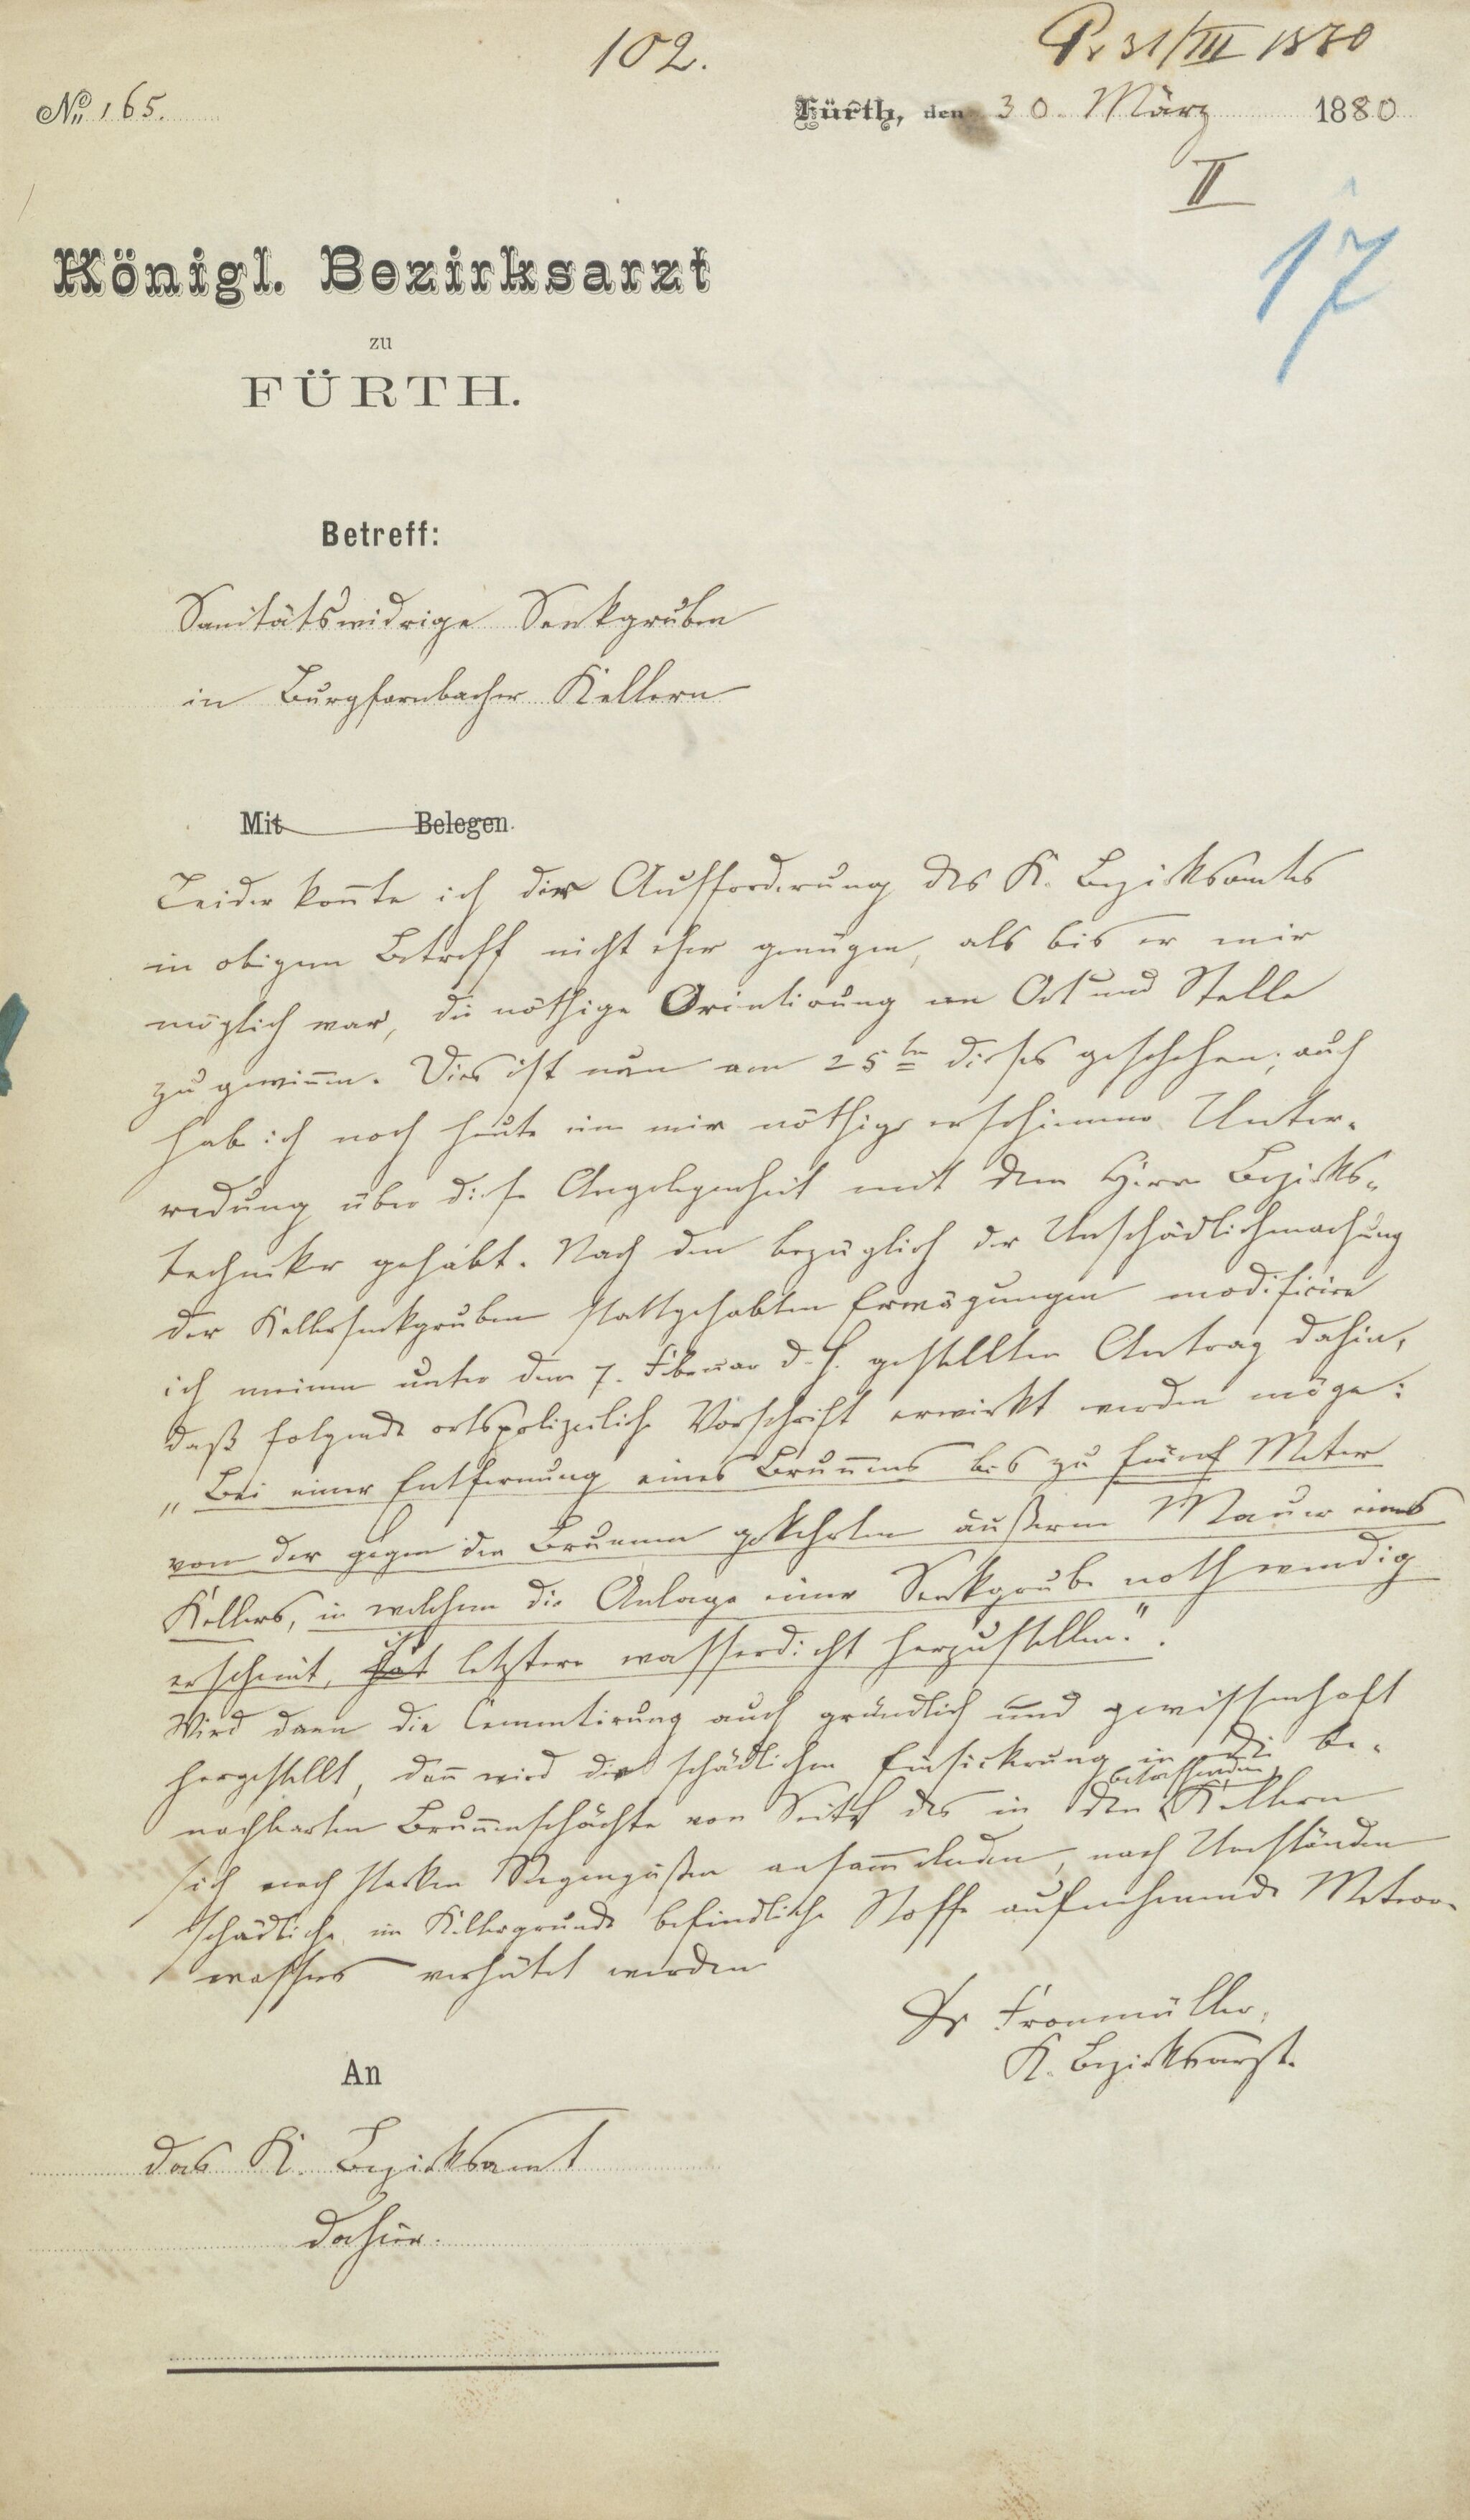 102.
Pr 31/III 1880
No. 165.
Fürth, den 30. März 1880
II
17
Königl. Bezirksarzt
zu
FÜRTH.
Betreff:
Sanitätswidrige Senkgruben
in Burgfarnbacher Kellern
Mit Belegen.
Leider konnte ich der Aufforderung des K. Bezirksamtes
in obigem Betreff nicht eher genügen, als bis er mir
möglich war, die nöthige Orientirung an Ort und Stelle
zu gewinnen. Dies ist nun am 25ten dieses geschehen; auch
hab ich noch heute eine mir nöthig erschienene Unter-
redung über diese Angelegenheit mit dem Herrn Bezirks-
techniker gehabt. Nach den bezüglich der Unschädlichmachung
der Kellersenkgruben stattgehabten Erwägungen modificire
ich meinen unter dem 7. Februar d. J. gestellten Antrag dahin,
daß folgende ortspolizeiliche Vorschrift erwirkt werden möge:
„Bei einer Entfernung eines Brunnens bis zu fünf Meter
von der gegen den Brunnen gekehrten äußeren Mauer eines
Kellers, in welchem die Anlage einer Senkgrube nothwendig
erscheint, ist letztere wasserdicht herzustellen.“
Wird dann die Cementirung auch gründlich und gewissenhaft
hergestellt, dann wird die schädlichen Einsickerung in die be-
nachbarten Brunnenschächte von Seite des in den betreffenden Kellern
sich nach starken Regengüßen ansammelnden, nach Umständen
schädliche im Kellergrunde befindliche Stoffe aufnehmende Meteor-
wassers verhütet werden
Dr Fronmüller,
K. Bezirksarzt.
An
das K. Bezirksamt
dahier.